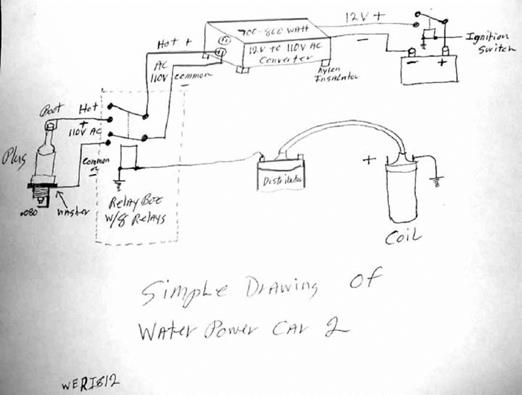 12V +
700-800 WATT
12V to 110V AC
Converter
Ignition
Switch
Hot +
AC
110V
common
-
-
- +
Nylon
Insulator
Boot
Hot
+
110V AC
common
-
Plug
.080
washer
Relay Box
w/8 Relays
Distributor
+
Coil
Simple Drawing Of
Water Power Car 2
WERI812